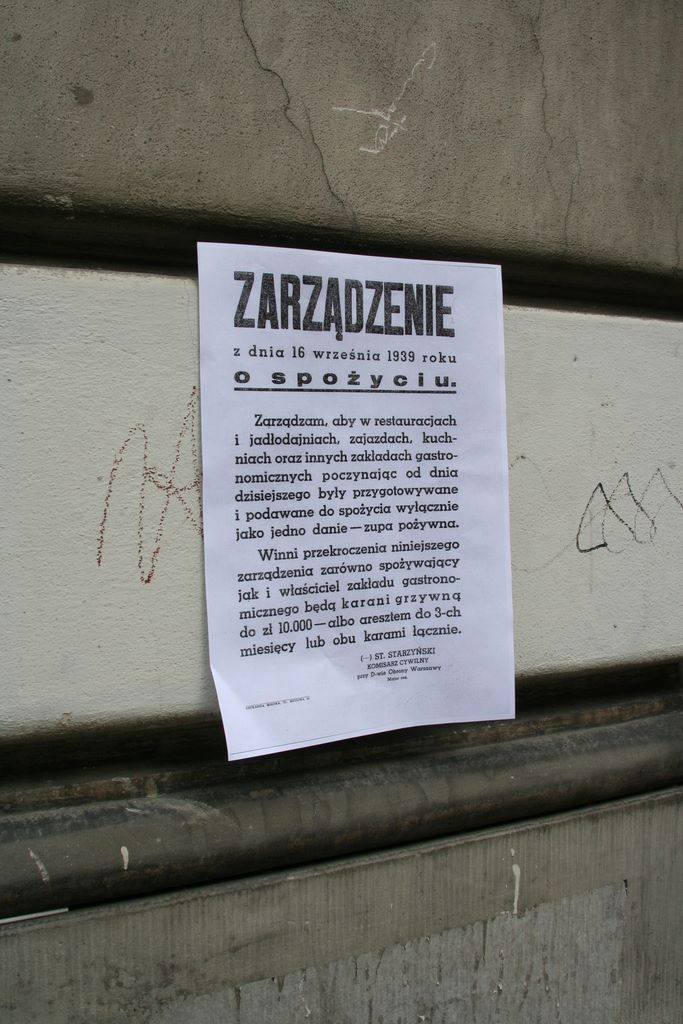 ZARZĄDZENIE
z dnia 16 września 1939 roku
o spożyciu.
Zarządzam, aby w restauracjach
i jadłodajniach, zajazdach, kuch-
niach oraz innych zakładach gastro-
nomicznych poczynając od dnia
dzisiejszego były przygotowywane
i podawane do spożycia wyłącznie
jako jedno danie — zupa pożywna.
Winni przekroczenia niniejszego
zarządzenia zarówno spożywający
jak i właściciel zakładu gastrono-
micznego będą karani grzywną
do zł 10.000 — albo aresztem do 3-ch
miesięcy lub obu karami łącznie.
(—) ST. STARZYŃSKI
KOMISARZ CYWILNY
przy D-wie Obrony Warszawy